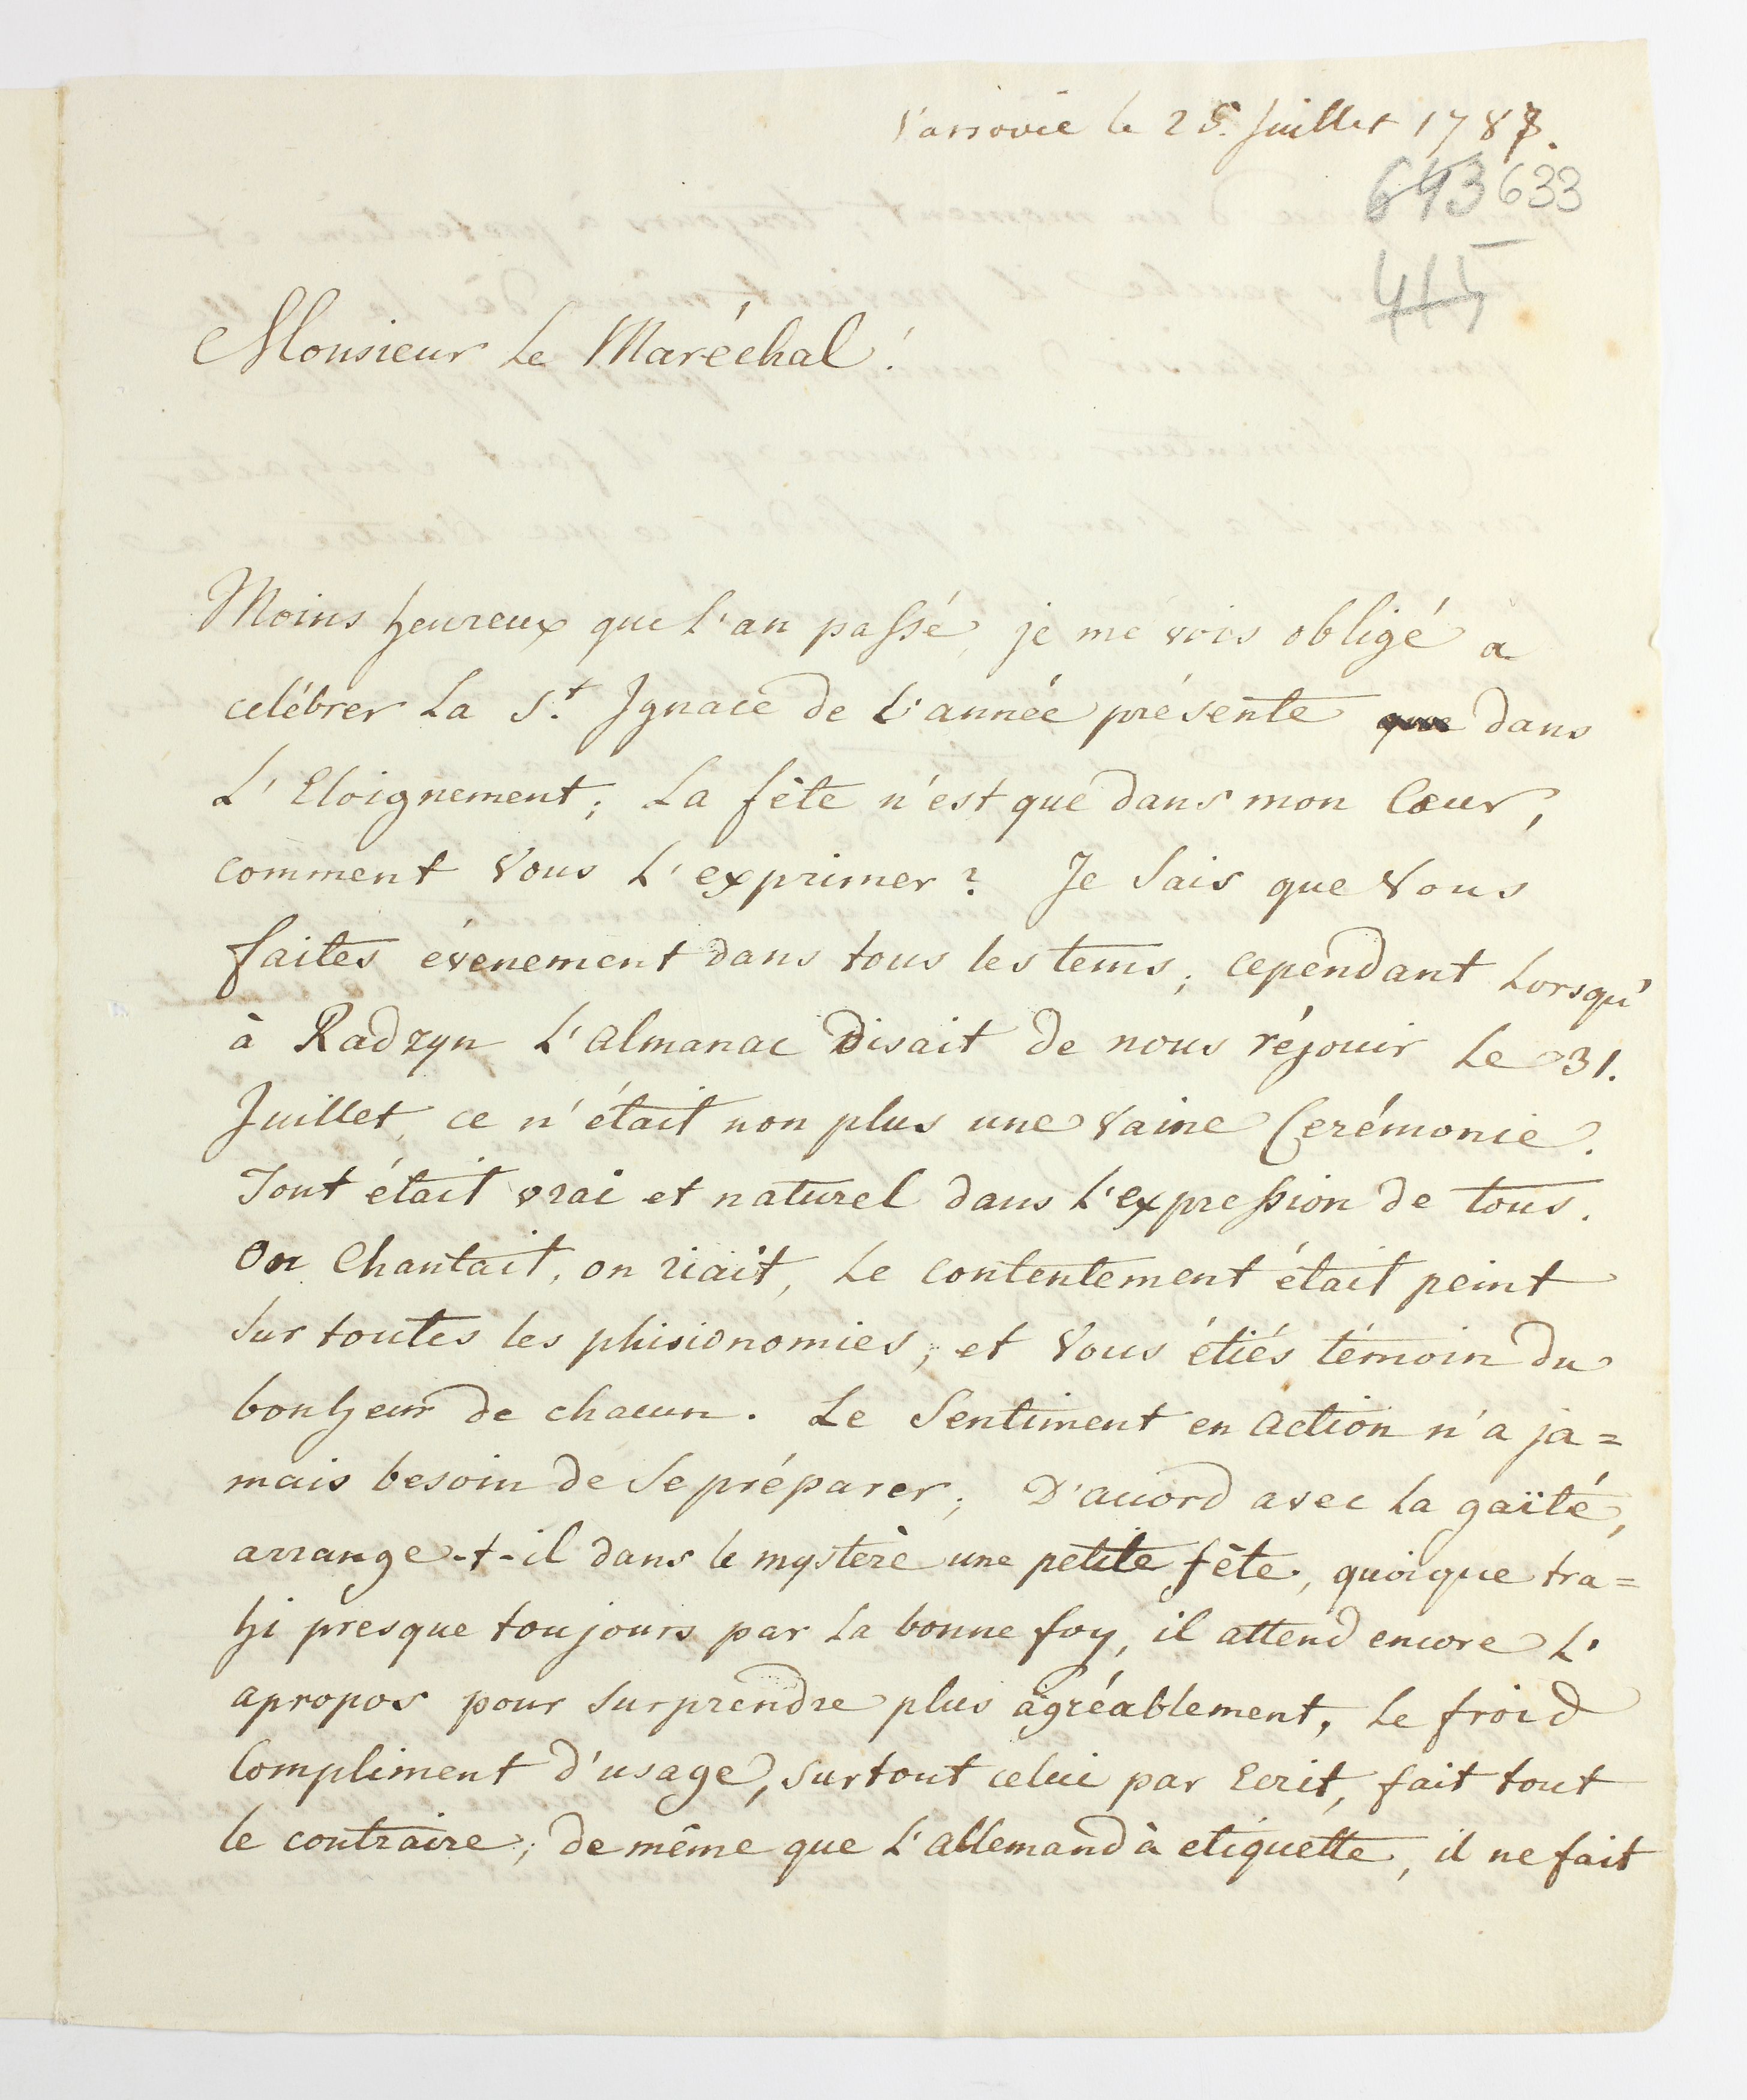 Varsovie le 25. Juillet 1787.
643 633
415
Monsieur Le Maréchal!
Moins heureux que L'an passé, je me vois obligé a
celébrer La St. Ignace de L'année présente que dans
L'Eloignement; La fête n'est que dans mon Cœur,
comment Vous L'exprimer? Je Sais que Vous
faites évenement dans tous les tems; cependant Lorsqu'
à Radzyn L'almanac Disait de nous réjouir Le 31.
Juillet, ce n'était non plus une Vaine Cerémonie.
Tout était vrai et naturel dans L'expression de tous.
On Chantait, on riait, Le contentement était peint
Sur toutes les phisionomies, et Vous étiés témoin du
bonheur de chacun. Le Sentiment en action n'a ja=
mais besoin de Se préparer; D'accord avec La gaïté,
arrange-t-il dans le mystère une petite fête, quoique tra=
hi presque toujours par La bonne foy, il attend encore L'
apropos pour Surprendre plus agréablement, Le froid
Compliment d'usage, Surtout celui par Ecrit, fait tout
le contraire; de même que L'allemand à etiquette, il ne fait